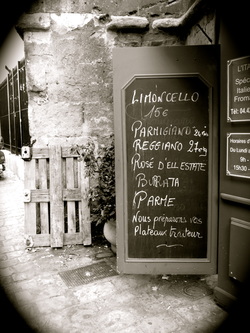 LIMONCELLO
15€
PARMIGIANO
REGGIANO
ROSÉ D'ELL ESTATE
BURRATA
PARME
NOUS PRÉPARONS VOS
PLATEAUX TRAITEUR
L'ITA
Spéc
Italie
From
Tél: 04.4
Horaires d'
Du Lundi a
9h -
15h30 -